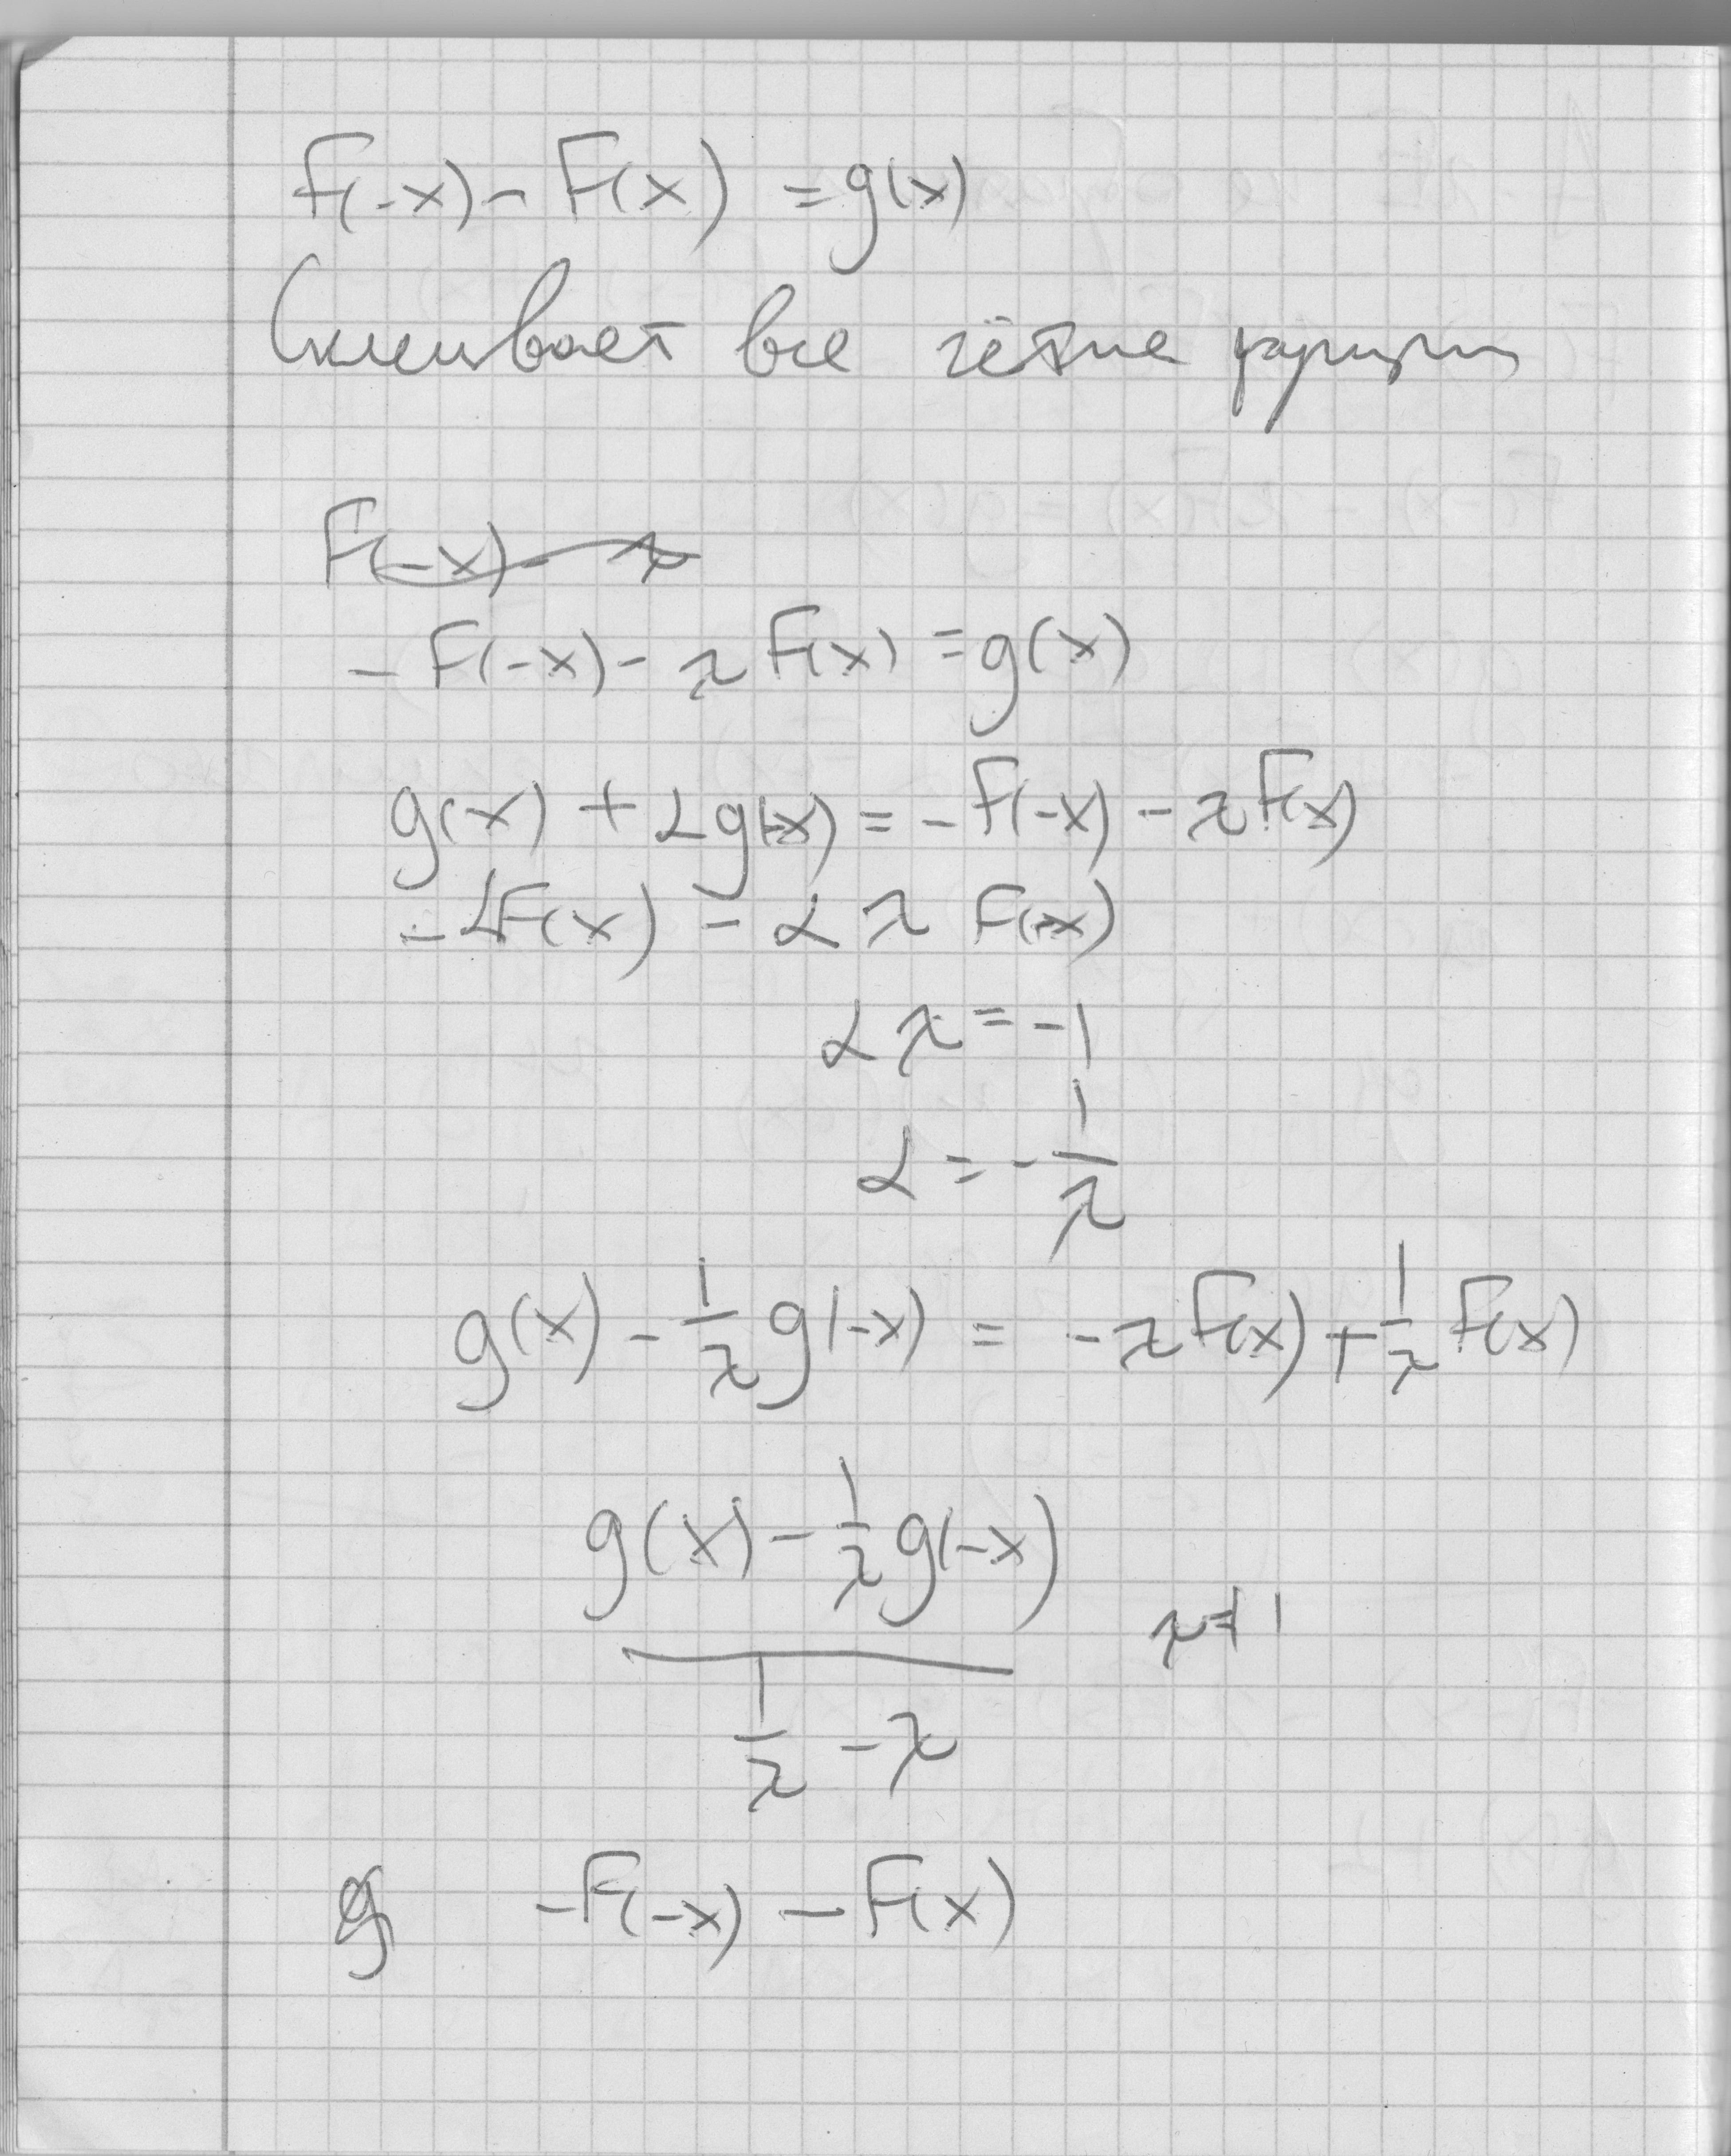 F(-x) - F(x) = g(x)
Склеивает все чётные функции
F(-x) - λ
-F(-x) - λF(x) = g(x)
g(x) + αg(-x) = -F(-x) - λF(x)
- αF(x) - αλ F(-x)
αλ = -1
α = -1/λ
g(x) - 1/λ g(-x) = -λF(x) + 1/λ F(x)
g(x) - 1/λ g(-x)
λ ≠ 1
1/λ - λ
g -F(-x) - F(x)